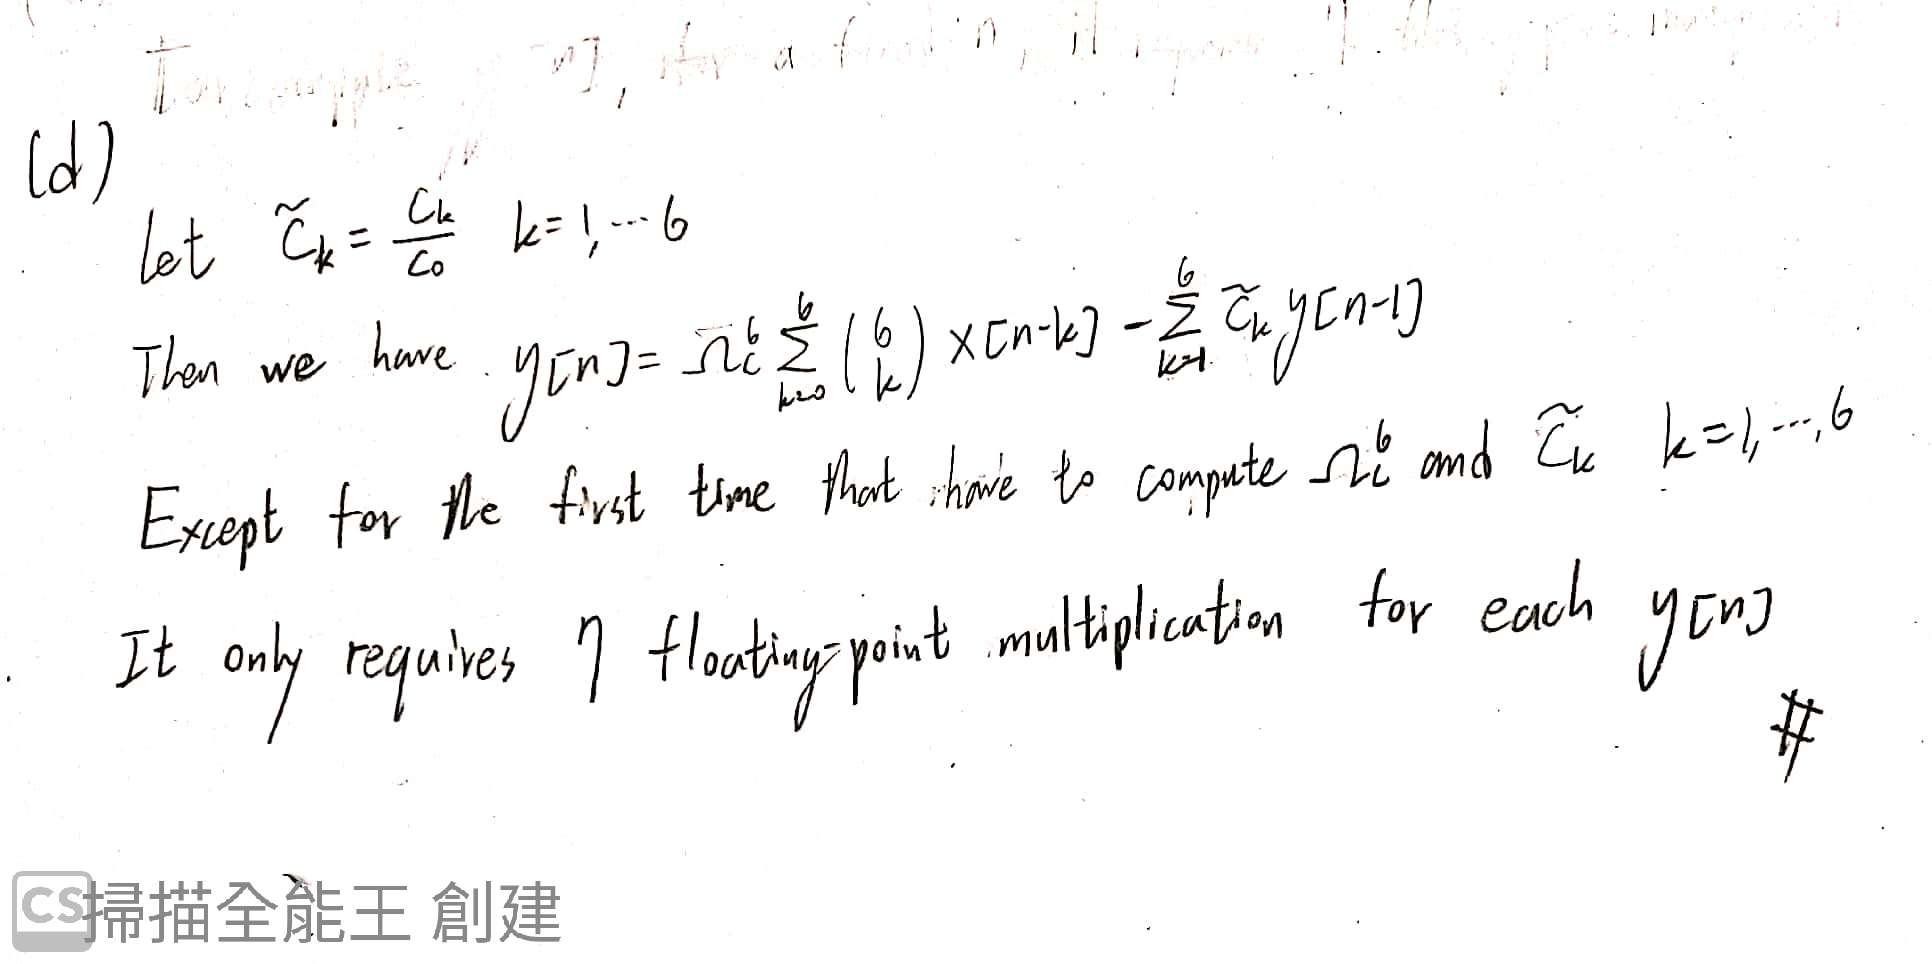 (d)
Let c̃_k = c_k / c_0 k=1,...6
Then we have y[n] = Ω_c^6 Σ_{k=0}^{6} (6 k) x[n-k] - Σ_{k=1}^{6} c̃_k y[n-1]
Except for the first time that have to compute Ω_c^6 and c̃_k k=1,...,6
It only requires 7 floating-point multiplication for each y[n]
#
CS掃描全能王 創建